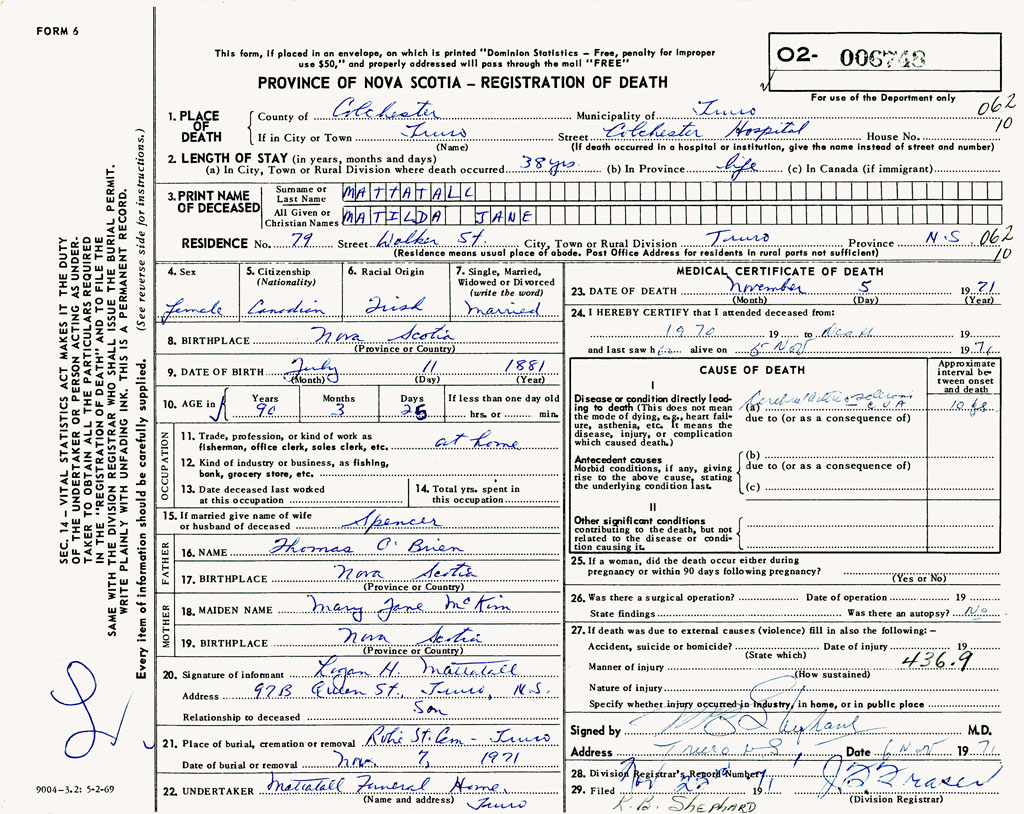 FORM 6
This form, if placed in an envelope, on which is printed "Dominion Statistics – Free, penalty for improper
use $50," and properly addressed will pass through the mail "FREE"
PROVINCE OF NOVA SCOTIA – REGISTRATION OF DEATH
02- 006748
For use of the Department only
062
10
1. PLACE OF DEATH
County of Colchester Municipality of Truro
If in City or Town Truro Street Colchester Hospital House No.
(Name) (If death occurred in a hospital or institution, give the name instead of street and number)
2. LENGTH OF STAY (in years, months and days)
(a) In City, Town or Rural Division where death occurred 38 yrs. (b) In Province life (c) In Canada (if immigrant)
3. PRINT NAME OF DECEASED
Surname or Last Name MATTATALL
All Given or Christian Names MATILDA JANE
RESIDENCE No. 79 Street Walker St. City, Town or Rural Division Truro Province N.S
(Residence means usual place of abode. Post Office Address for residents in rural parts not sufficient)
062
10
4. Sex
female
5. Citizenship (Nationality)
Canadian
6. Racial Origin
Irish
7. Single, Married, Widowed or Divorced (write the word)
Married
8. BIRTHPLACE Nova Scotia
(Province or Country)
9. DATE OF BIRTH July 11 1881
(Month) (Day) (Year)
10. AGE in
Years Months Days If less than one day old
90 3 25 hrs. or min.
OCCUPATION
11. Trade, profession, or kind of work as
fisherman, office clerk, sales clerk, etc. at home
12. Kind of industry or business, as fishing,
bank, grocery store, etc.
13. Date deceased last worked
at this occupation
14. Total yrs. spent in
this occupation
15. If married give name of wife
or husband of deceased Spencer
FATHER
16. NAME Thomas O'Brien
17. BIRTHPLACE Nova Scotia
(Province or Country)
MOTHER
18. MAIDEN NAME Mary Jane McKim
19. BIRTHPLACE Nova Scotia
(Province or Country)
20. Signature of informant Logan H. Mattatall
Address 97B Queen St., Truro, N.S.
Relationship to deceased Son
21. Place of burial, cremation or removal Robie St. Cem - Truro
Date of burial or removal Nov. 7, 1971
22. UNDERTAKER Mattatall Funeral Home,
(Name and address) Truro
MEDICAL CERTIFICATE OF DEATH
23. DATE OF DEATH November 5 1971
(Month) (Day) (Year)
24. I HEREBY CERTIFY that I attended deceased from:
1970 19 to Death 19
and last saw h alive on 5 Nov 1971
CAUSE OF DEATH
Approximate interval between onset and death
I
Disease or condition directly leading to death (This does not
the mode of dying, e.g., heart failure, asthenia, etc. It means the
disease, injury, or complication
which caused death.)
(a) Cerebral Arteriosclerosis
C.V.A 10 yrs
due to (or as a consequence of)
Antecedent causes
Morbid conditions, if any, giving
rise to the above cause, stating
the underlying condition last.
(b)
due to (or as a consequence of)
(c)
II
Other significant conditions
contributing to the death, but not
related to the disease or condition causing it.
25. If a woman, did the death occur either during
pregnancy or within 90 days following pregnancy?
(Yes or No)
26. Was there a surgical operation? Date of operation 19
State findings Was there an autopsy? No
27. If death was due to external causes (violence) fill in also the following: –
Accident, suicide or homicide? Date of injury 19
(State which) 436.9
Manner of injury
(How sustained)
Nature of injury
Specify whether injury occurred in industry, in home, or in public place
Signed by M.D.
Address Truro N S Date 6 Nov 1971
28. Division Registrar's Record Number
29. Filed Nov 22nd 1971
(Division Registrar)
K. B. SHEPHARD
SEC. 14 – VITAL STATISTICS ACT MAKES IT THE DUTY
OF THE UNDERTAKER OR PERSON ACTING AS UNDERTAKER TO OBTAIN ALL THE PARTICULARS REQUIRED
IN THE "REGISTRATION OF DEATH" AND TO FILE THE
SAME WITH THE DIVISION REGISTRAR WHO SHALL ISSUE THE BURIAL PERMIT.
WRITE PLAINLY WITH UNFADING INK. THIS IS A PERMANENT RECORD.
Every item of information should be carefully supplied. (See reverse side for instructions.)
9004-3.2: 5-2-69